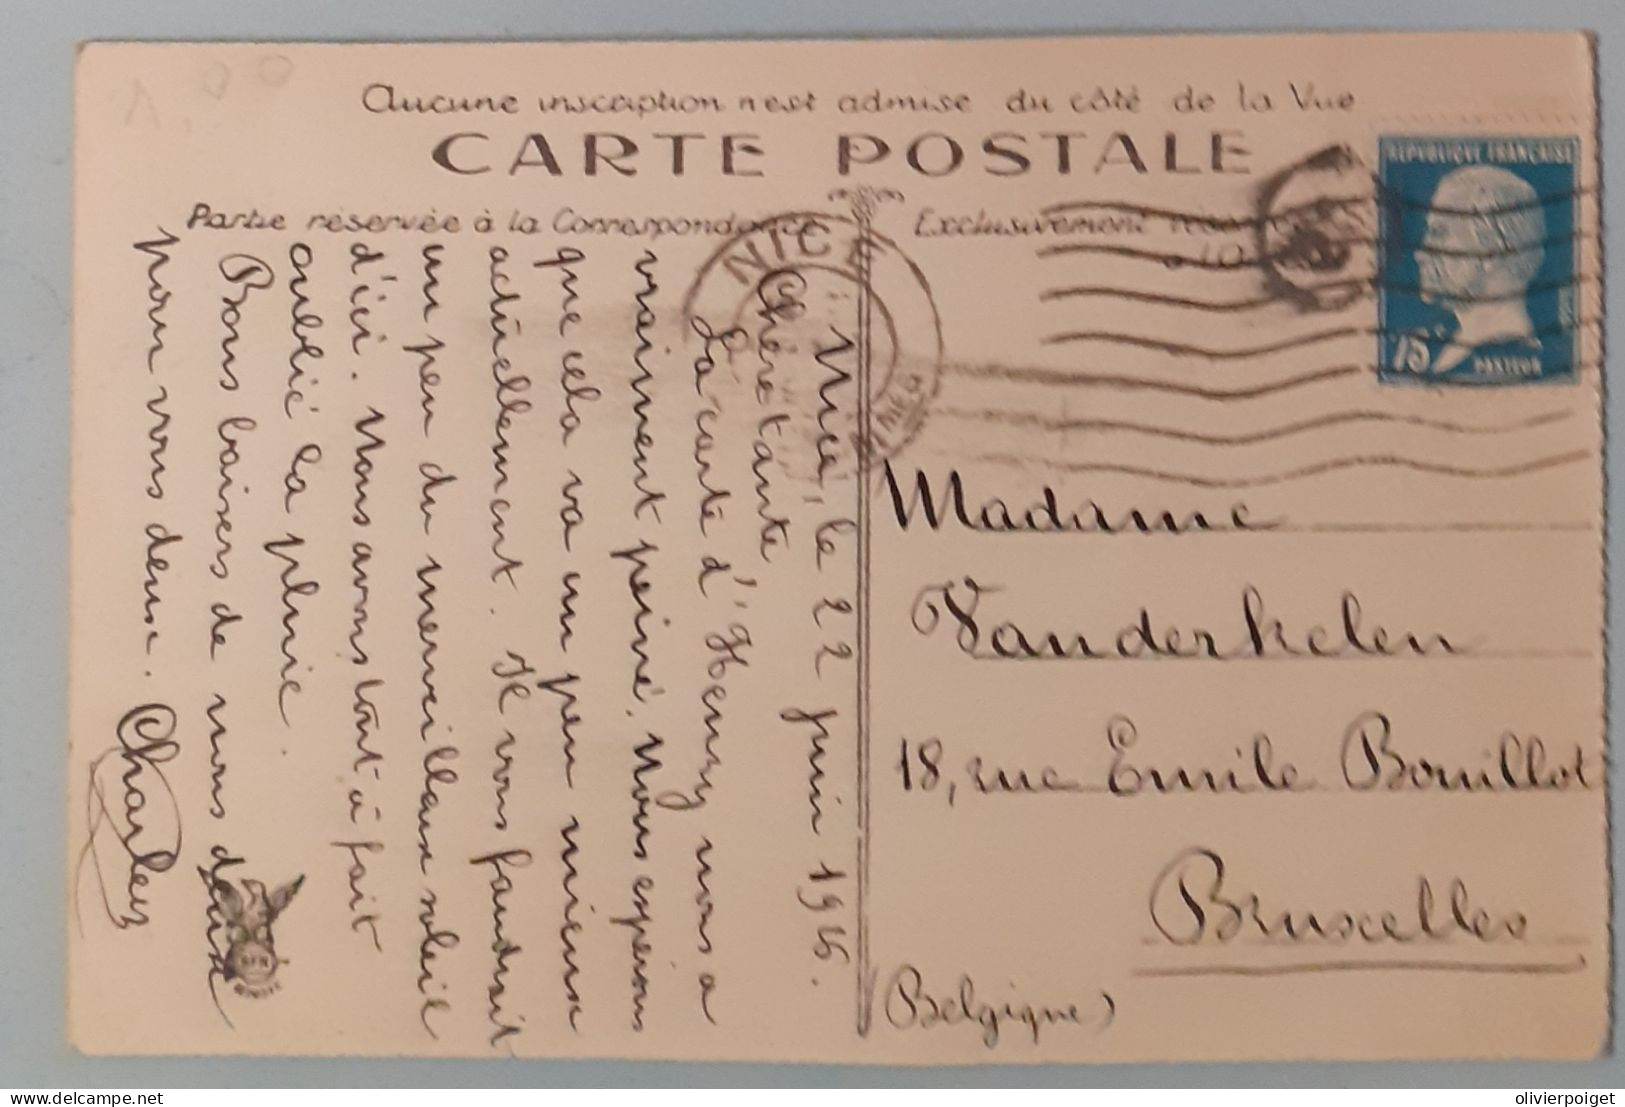 1,00
Aucune inscription n'est admise du côté de la Vue
CARTE POSTALE
Partie réservée à la Correspondance
Exclusivement
RÉPUBLIQUE FRANÇAISE
75c
PASTEUR
NICE
Nice, le 22 juin 1926.
Chère tante
La carte d'Henry nous a
vraiment peiné. Nous espérons
que cela va un peu mieux
actuellement. Il vous faudrait
un peu du merveilleux soleil
d'ici. Nous avons tout à fait
oublié la pluie.
Bons baisers de nous deux
pour vous deux.
Charley
Madame
Vanderkelen
18, rue Emile Bouillot
Bruxelles
(Belgique)
delcampe.net
olivierpoiget